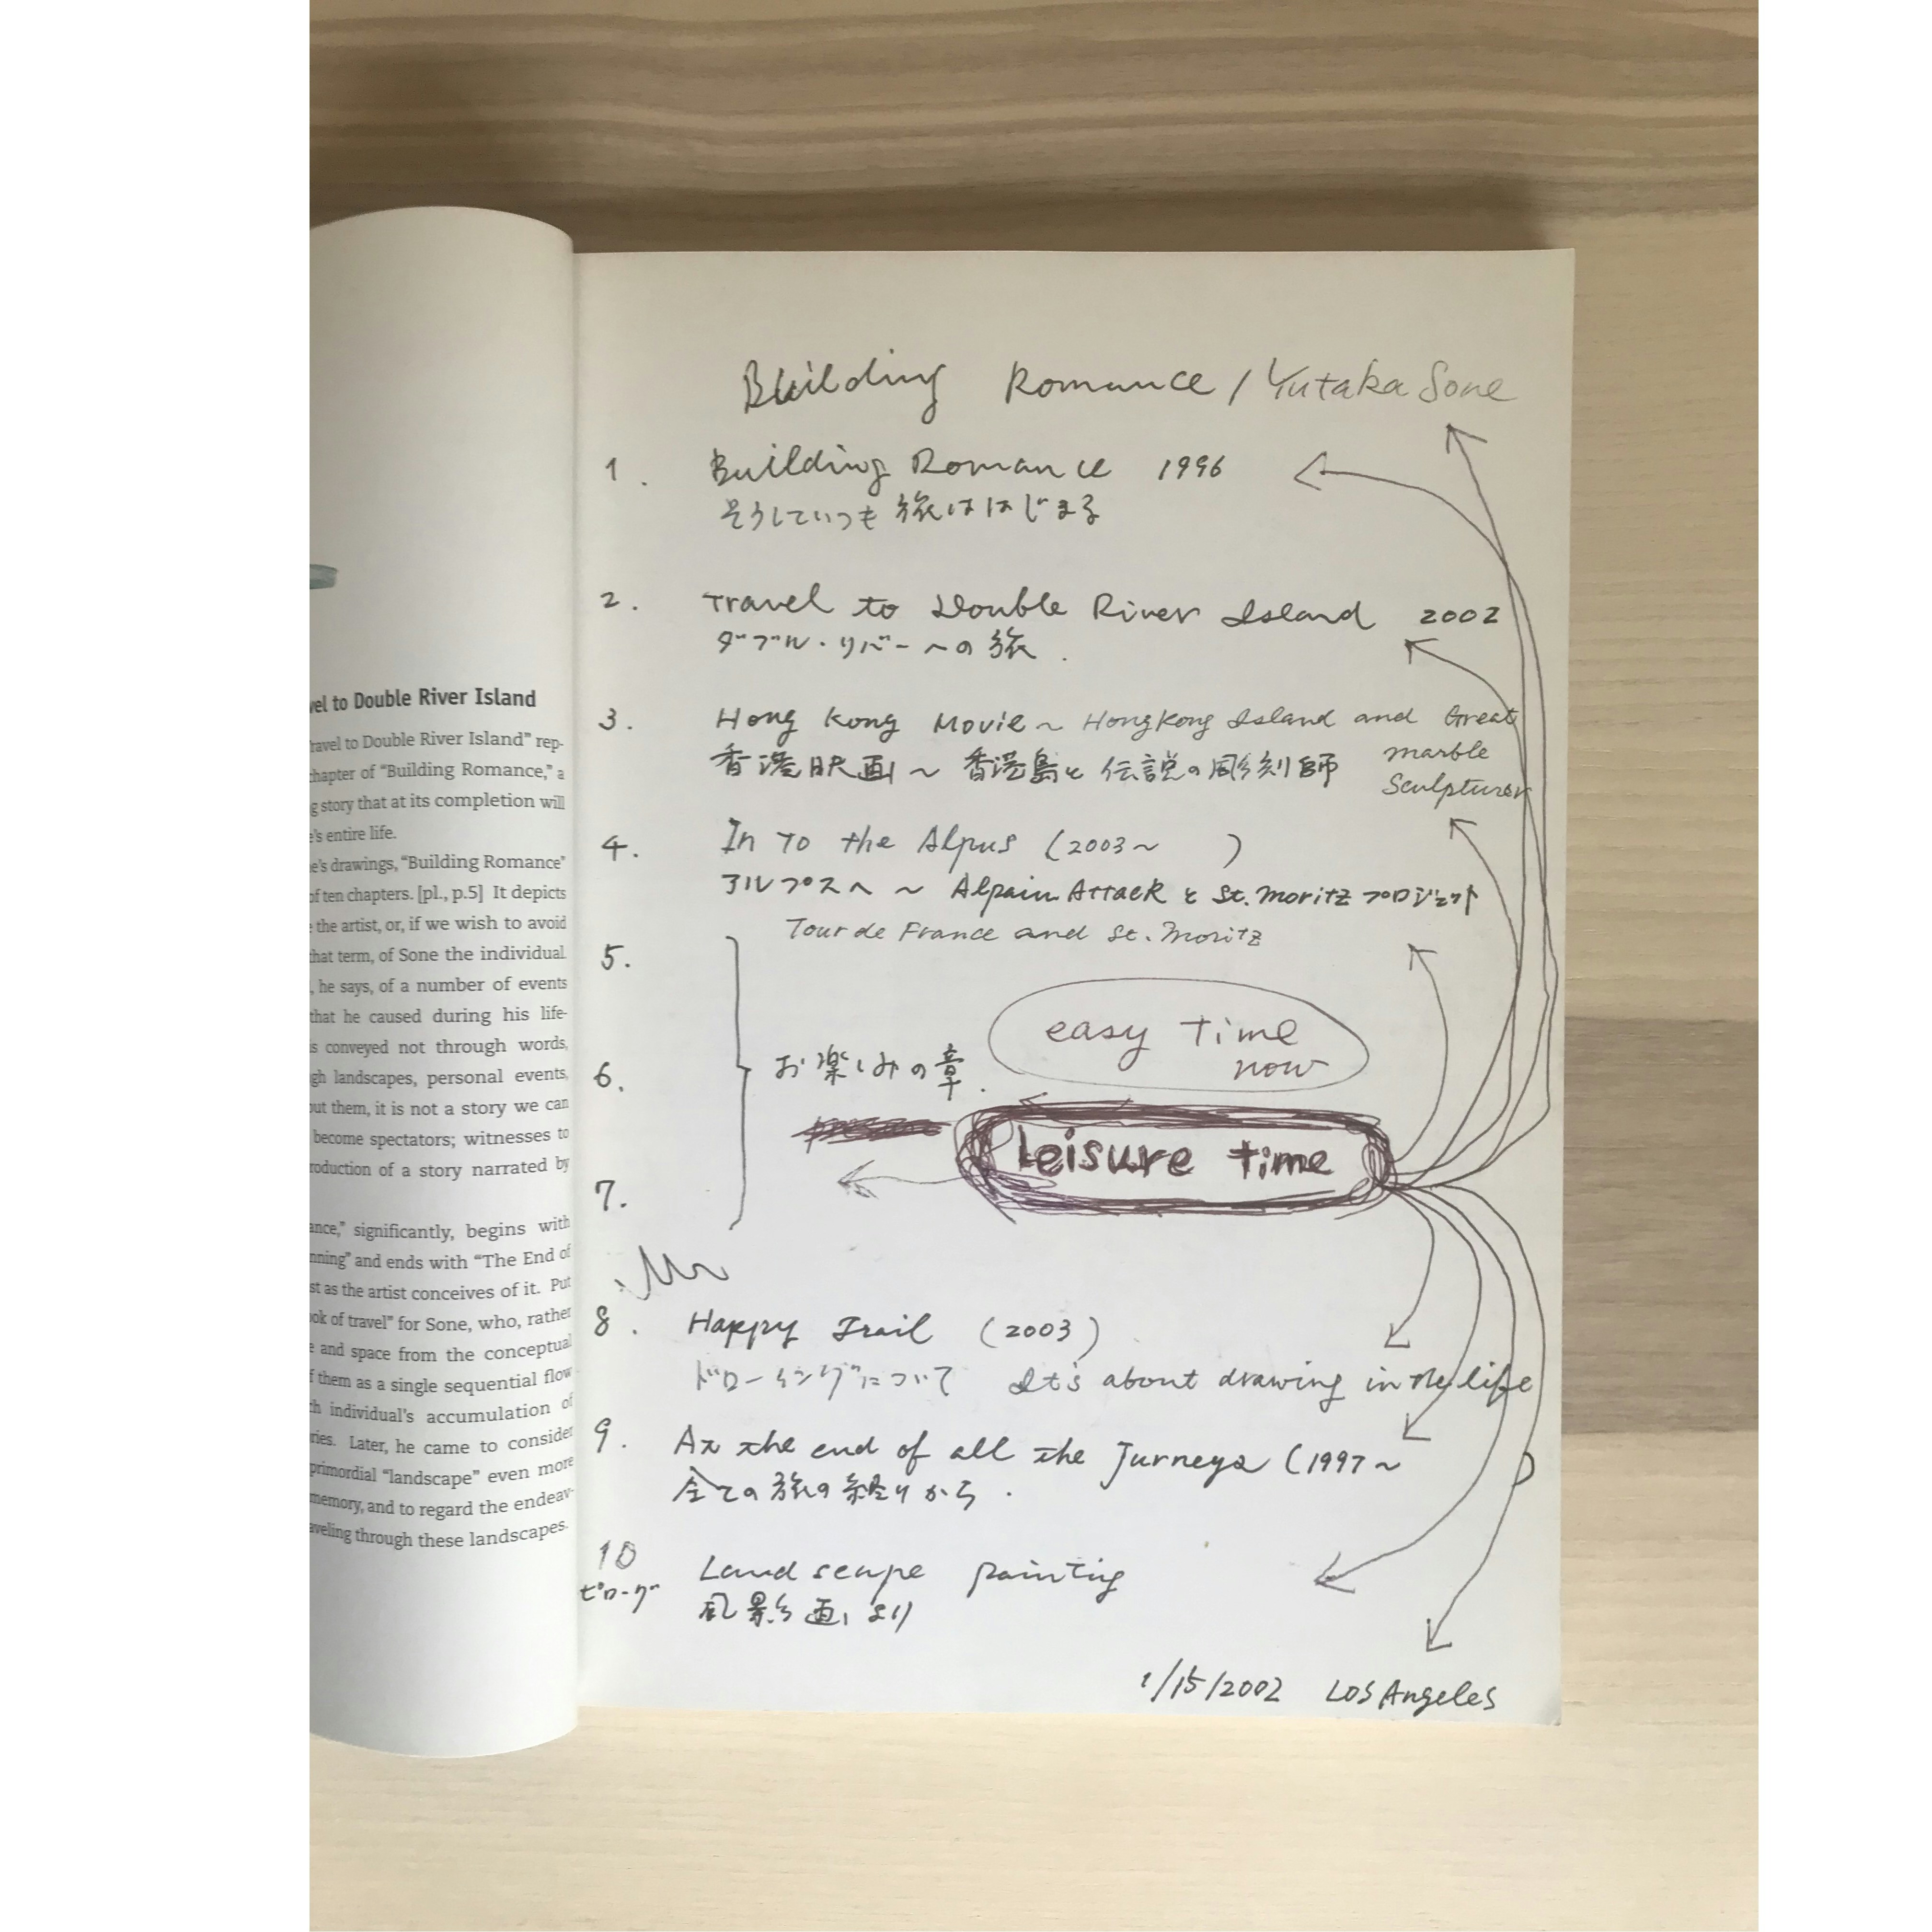 vel to Double River Island
ravel to Double River Island” rep-
chapter of “Building Romance,” a
g story that at its completion will
e’s entire life.
e’s drawings, “Building Romance”
of ten chapters. [pl., p.5] It depicts
the artist, or, if we wish to avoid
that term, of Sone the individual.
, he says, of a number of events
that he caused during his life-
s conveyed not through words,
gh landscapes, personal events,
out them, it is not a story we can
become spectators; witnesses to
roduction of a story narrated by
ance,” significantly, begins with
nning” and ends with “The End of
st as the artist conceives of it. Put
ok of travel” for Sone, who, rather
e and space from the conceptual
f them as a single sequential flow
ch individual’s accumulation of
ries. Later, he came to consider
primordial “landscape” even more
memory, and to regard the endeav-
aveling through these landscapes.
Building Romance / Yutaka Sone
1. Building Romance 1996
そうしていつも旅ははじまる
2. Travel to Double River Island 2002
ダブル・リバーへの旅.
3. Hong Kong Movie ~ HongKong Island and Great
marble
Sculpturer
香港映画 ~ 香港島と伝説の彫刻師
4. In To the Alpus (2003~ )
アルプスへ ~ Alpain Attack と St. Moritz プロジェクト
Tour de France and St. Moritz
5.
easy time
now
6. お楽しみの章.
leisure time
7.
8. Happy Trail (2003)
ドローイングについて It's about drawing in the life
9. At the end of all the Jurneys (1997~ )
全ての旅の終りから.
10 Landscape painting
ピローグ 風景画より
1/15/2002 Los Angeles